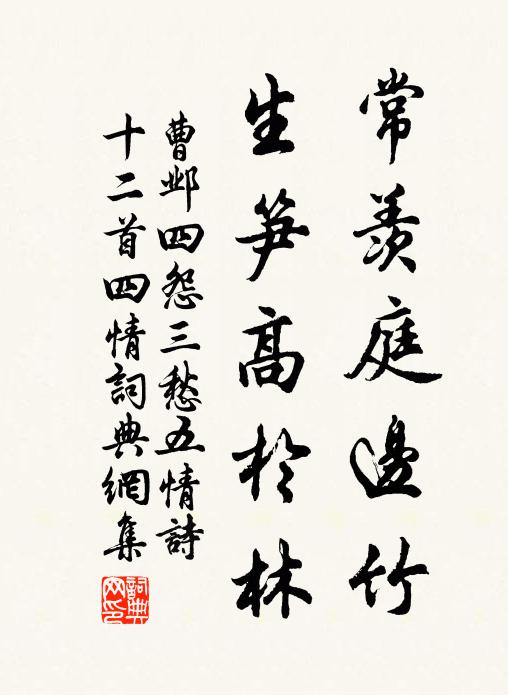 常羨庭邊竹
生笋高於林
曹邺四怨三愁五情詩
十二首四情詞典網集
詞典
网印